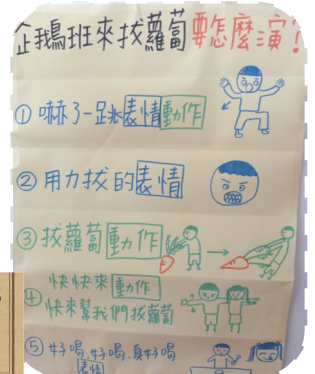 企鵝班來拔蘿蔔要怎麼演?
① 嚇了一跳表情動作
② 用力拔的表情
③ 拔蘿蔔動作
④ 快快來動作
快來幫我們拔蘿蔔
⑤ 好喝.好喝.真好喝
表情